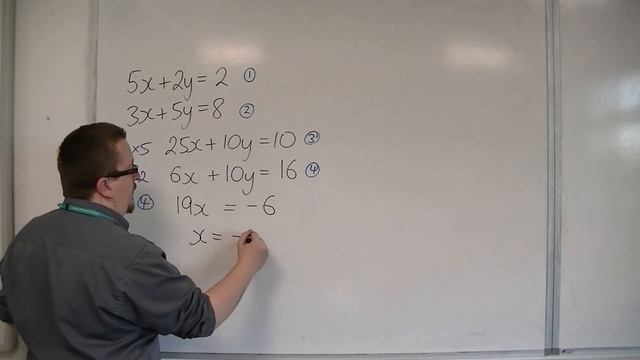 5x+2y=2 ①
3x+5y=8 ②
×5 25x+10y=10 ③
2 6x+10y=16 ④
④ 19x = -6
x = -